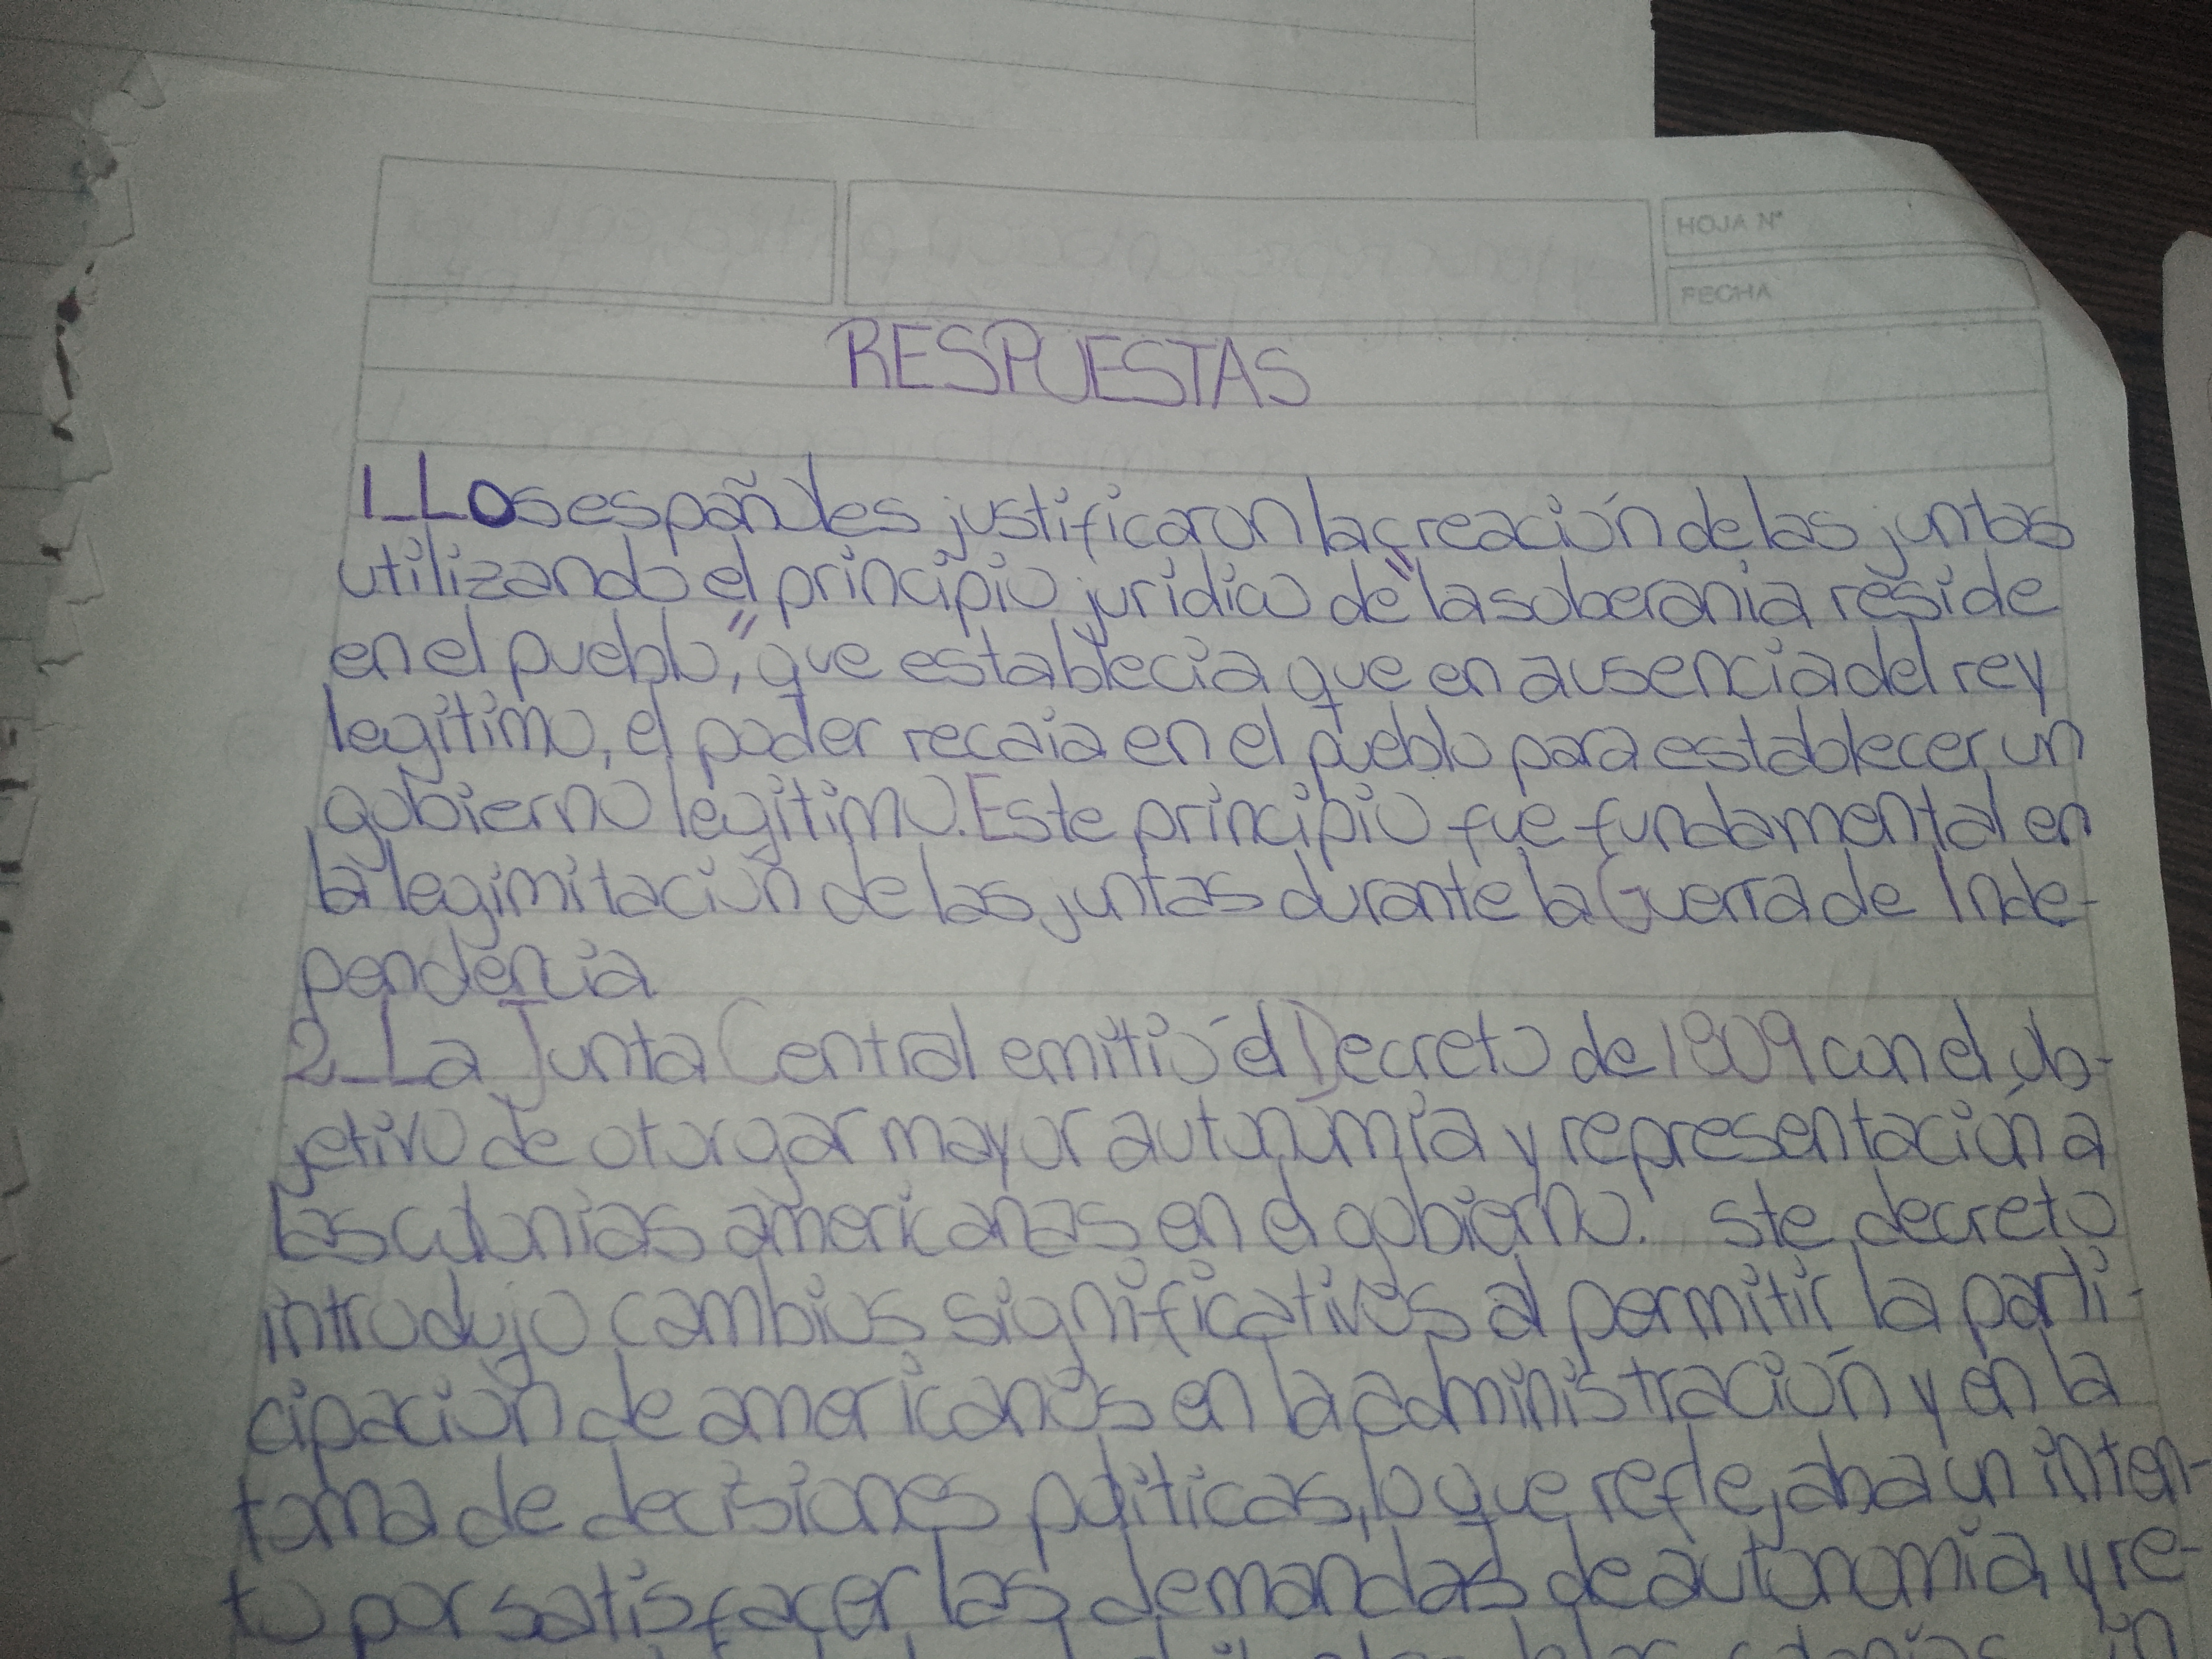 HOJA Nº
FECHA
RESPUESTAS
1_Los españoles justificaron la creación de las juntas
utilizando el principio jurídico de "la soberania reside
en el pueblo", que establecia que en ausencia del rey
legitimo, el poder recaia en el pueblo para establecer un
gobierno legitimo. Este principio fue fundamental en
la legimitación de las juntas durante la Guerra de Inde-
pendencia
2_La Junta Central emitió el Decreto de 1809 con el ob-
jetivo de otorgar mayor autonomía y representación a
las colonias americanas en el gobierno. ste decreto
introdujo cambios significativos al permitir la parti-
cipación de americanos en la administración y en la
toma de decisiones politicas, lo que reflejaba un inten-
to por satisfacer las demandas de autonomía y re-